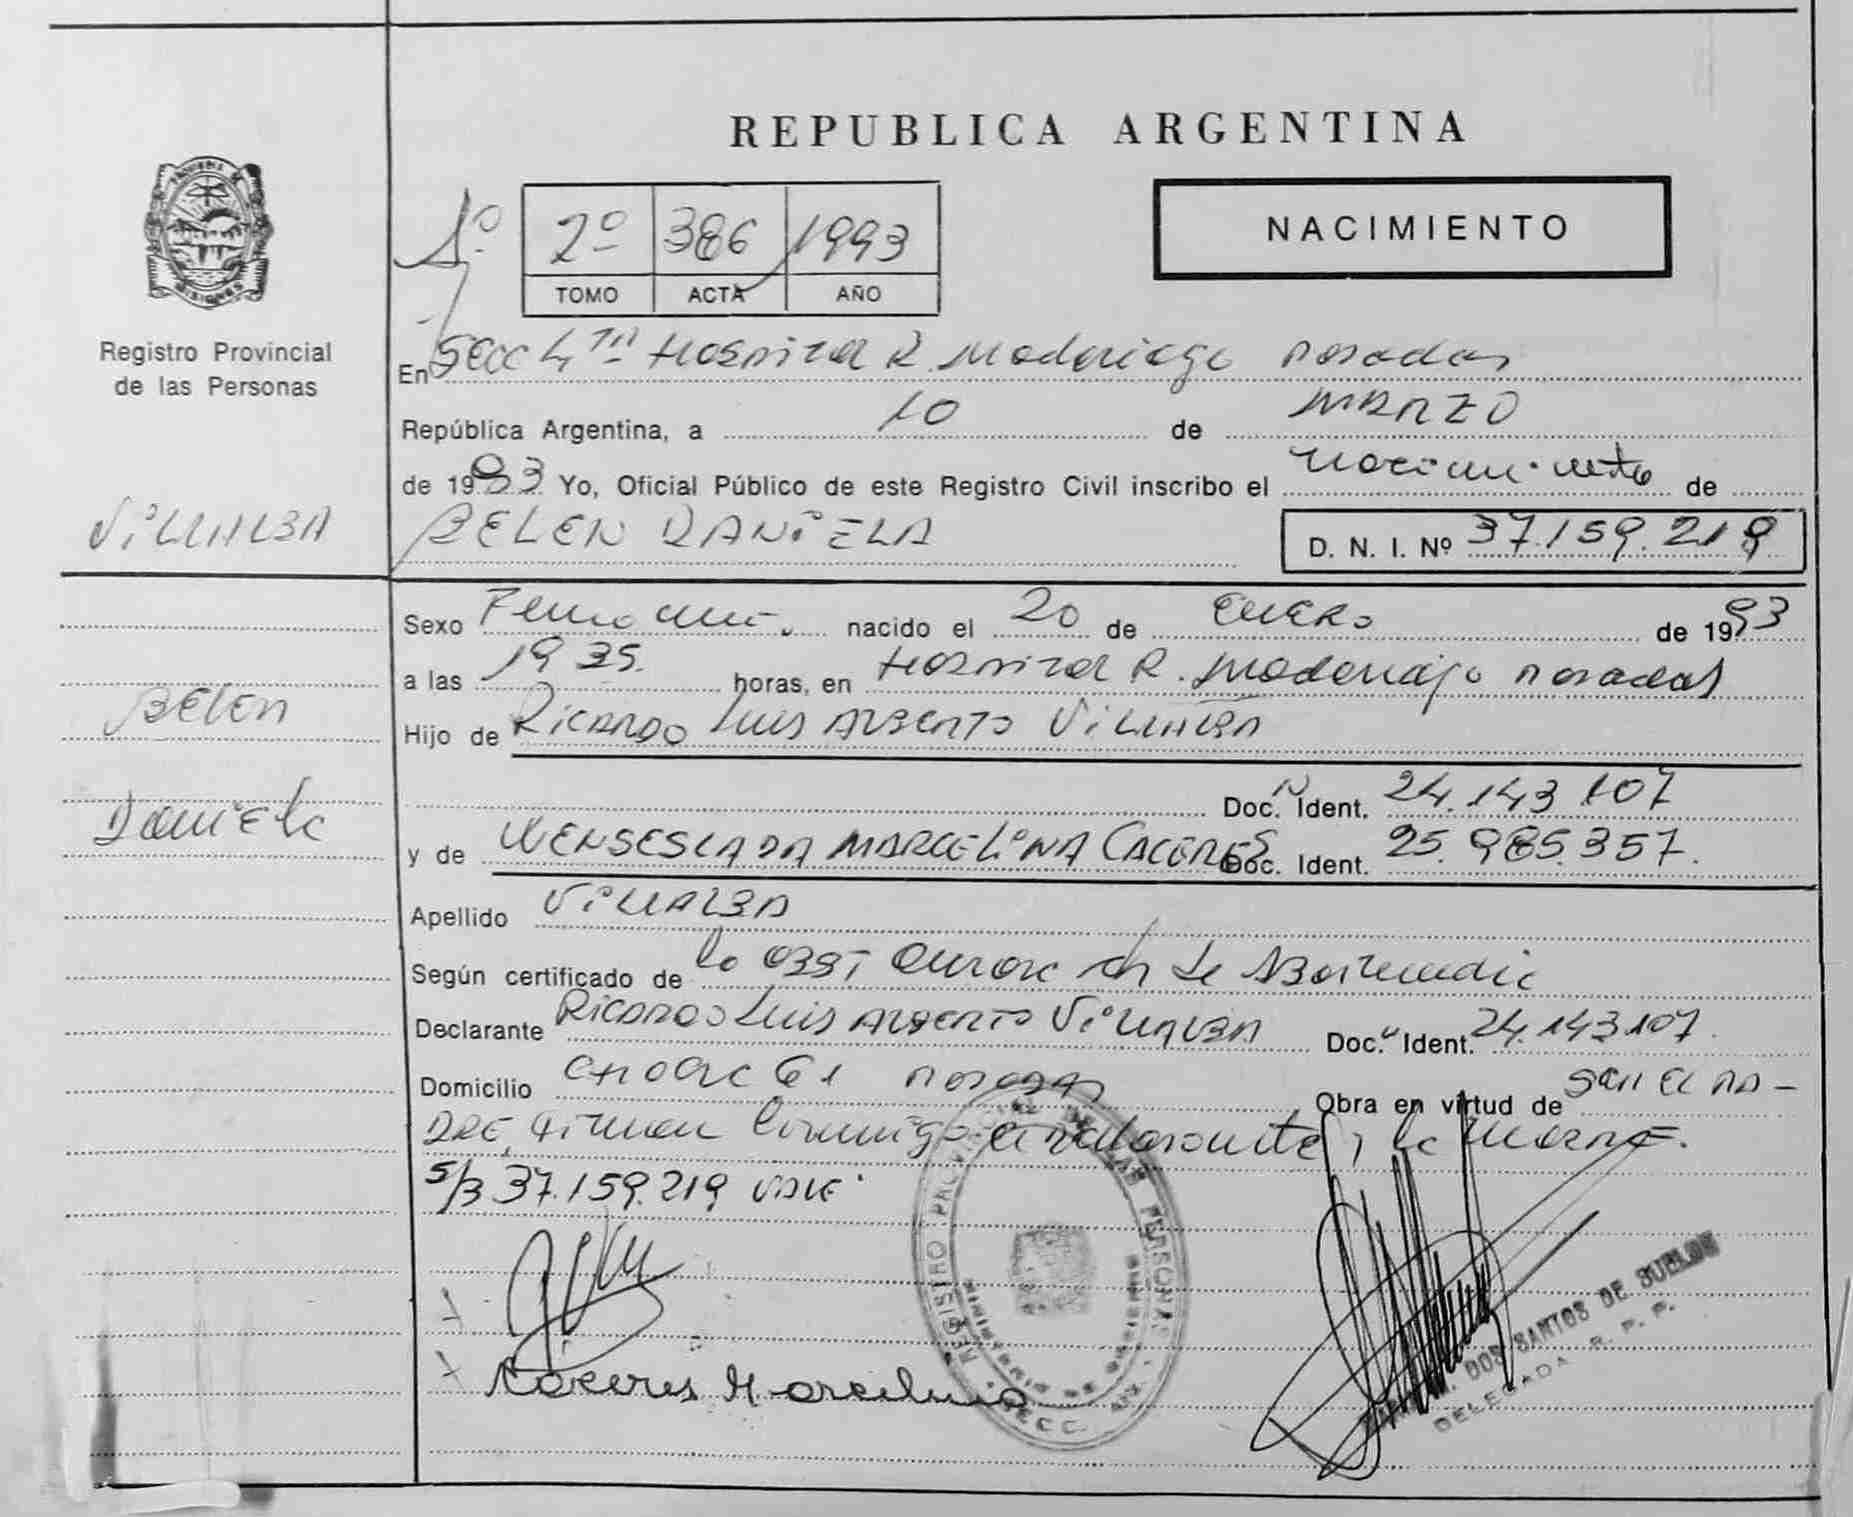 REPUBLICA ARGENTINA
1º 2º 386 1993
TOMO ACTA AÑO
NACIMIENTO
MISIONES
Registro Provincial
de las Personas
En Secc 4ta Hospital R. Madariaga Posadas
República Argentina, a 10 de MARZO
de 1993 Yo, Oficial Público de este Registro Civil inscribo el nacimiento de
VILLALBA
BELEN DANIELA
D. N. I. Nº 37.159.219
Sexo Femenino nacido el 20 de ENERO de 1993
a las 19 35. horas, en Hospital R. Madariaga Posadas
BELEN
Hijo de RICARDO LUIS ALBERTO VILLALBA
Doc. Ident. 24.143.107
DaniELa
y de WENSESLADA MARCELINA CACERES Doc. Ident. 25.985.357.
Apellido VILLALBA
Según certificado de la OBST Aurora de
Declarante RICARDO LUIS ALBERTO VILLALBA Doc. Ident. 24.143.107.
Domicilio 61 Posadas Obra en virtud de ser EL PA-
DRE, firman conmigo el declarante y la MADRE.
S/B 37.159.219 VALE.
REGISTRO PROVINCIAL DE LAS PERSONAS
Caceres Marcelina
DOS SANTOS DE SUELDO
DELEGADA R. P. P.